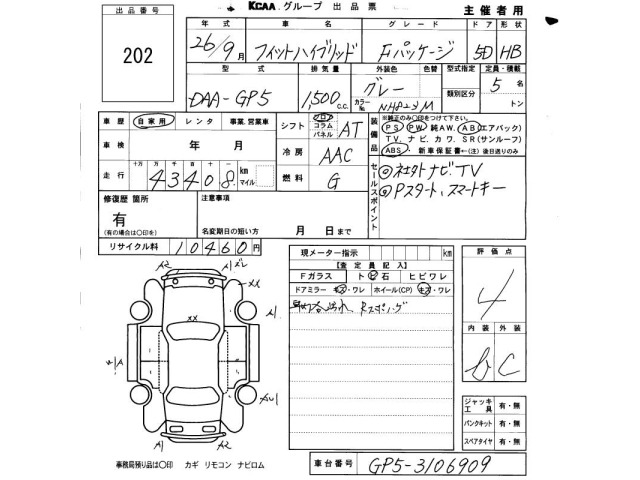 出品番号
202
KCAA グループ 出品票
主催者用
年式 車名 グレード ドア 形状
26/9月 フィットハイブリッド Fパッケージ 5D HB
型式 排気量 外装色 色替 型式指定 定員・積載
DAA-GP5 1,500 c.c. グレー カラーNo. 類別区分 5名
トン
車歴 自家用 レンタ 事業.営業車
シフト フロア コラム パネル AT
装備品
※純正のみ〇印をつけて下さい。
PS PW 純AW. AB(エアバック)
TV. ナビ. カワ. SR(サンルーフ)
ABS. 新車保証書←(有) 注 後日送りのみ
車検 年 月
冷房 AAC
走行 十万 万 千 百 十 一 43408 km マイル
燃料 G
セールスポイント
◎社外ナビTV
◎Pスタート、スマートキー
修復歴 箇所
有
(有の場合は〇印を)
注意事項
名変期日の短い方 月 日まで
リサイクル料 10460円
現メーター指示 km
【査定員記入】
Fガラス トビ石 ヒビワレ
ドアミラー キズ・ワレ ホイール(CP) キズ・ワレ
評価点
4
内装 外装
b C
A2 A1 ズレ
XX
A1
XX
A1
A1 A2
ジャッキ 工具 有・無
パンクキット 有・無
スペアタイヤ 有・無
事務局預り品は〇印 カギ リモコン ナビロム
車台番号 GP5-3106909